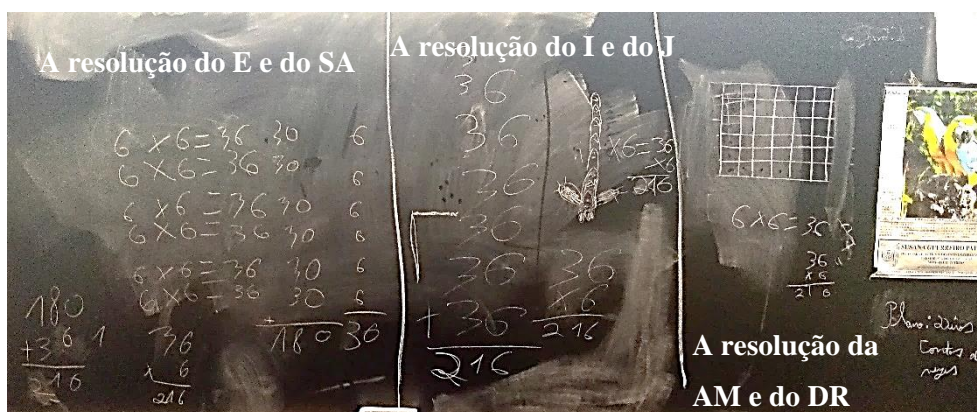 A resolução do E e do SA
6 × 6 = 36 30 6
6 × 6 = 36 30 6
6 × 6 = 36 30 6
6 × 6 = 36 30 6
6 × 6 = 36 30 6
6 × 6 = 36 30 6
+ 180 36
180
+ 36 1
216
36
× 6
216
A resolução do I e do J
36
36
36
36
36
+ 36
216
×6=36
×6
216
36
× 6
216
6×6=36
36
× 6
216
A resolução da
AM e do DR